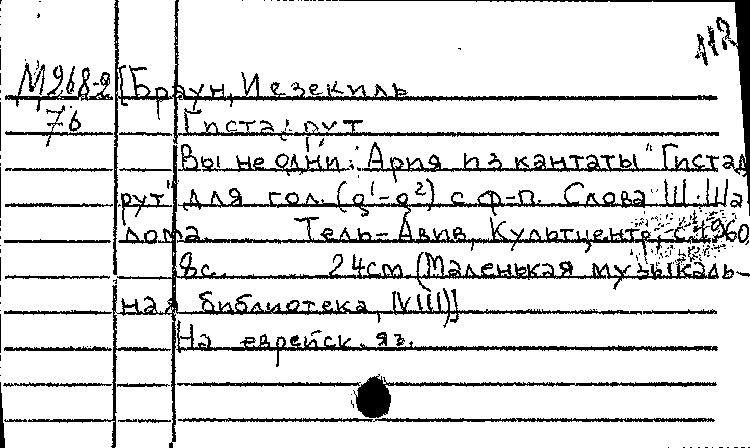 112
М268-2 [Браун, Иезекиль
76 Гистадрут
Вы не одни: Ария из кантаты "Гистад
рут" для гол. (g¹-g²) с ф-п. Слова Ш. Ша
лома Тель-Авив, Культцентр, с. 1960
8с. 24см (Маленькая музыкаль-
ная библиотека, [VIII)]
На еврейск. яз.